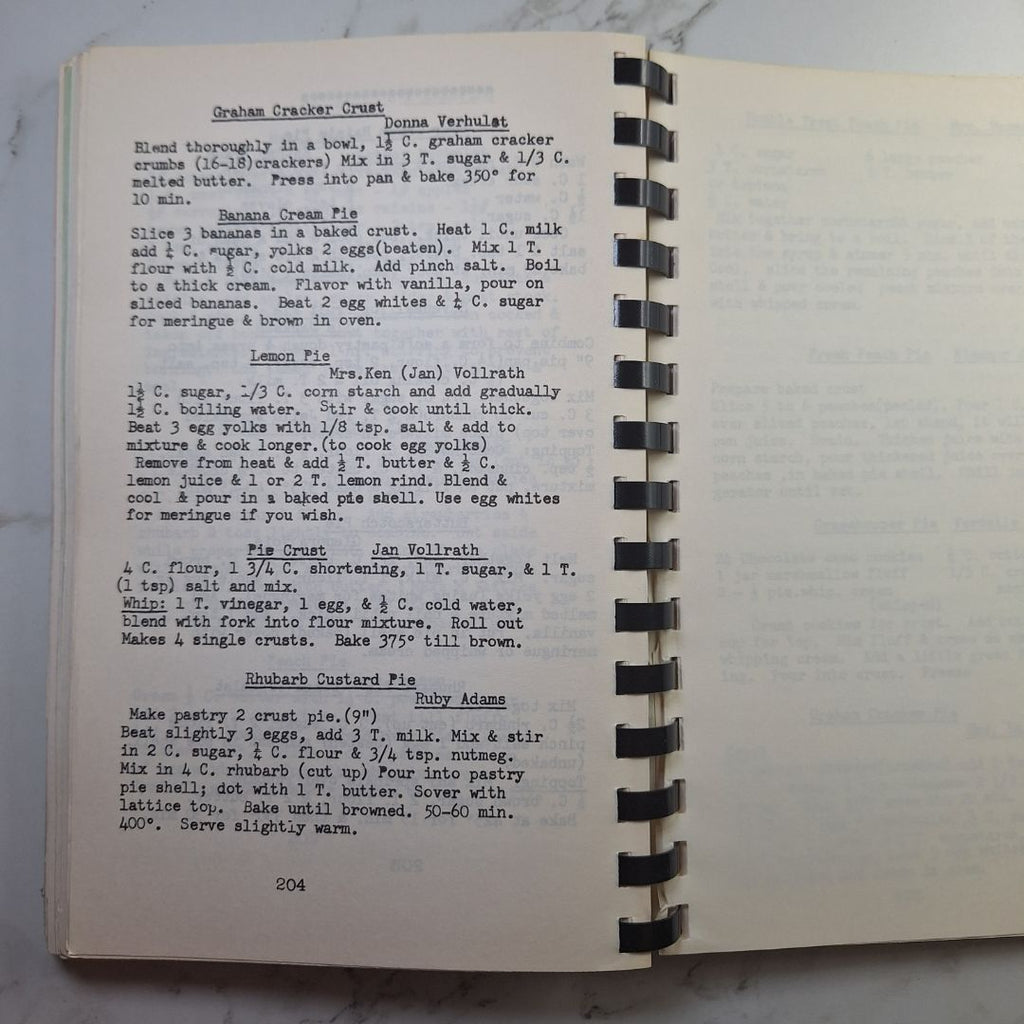 Graham Cracker Crust
Donna Verhulst
Blend thoroughly in a bowl, 1½ C. graham cracker
crumbs (16-18)crackers) Mix in 3 T. sugar & 1/3 C.
melted butter. Press into pan & bake 350° for
10 min.
Banana Cream Pie
Slice 3 bananas in a baked crust. Heat 1 C. milk
add ¼ C. sugar, yolks 2 eggs(beaten). Mix 1 T.
flour with ½ C. cold milk. Add pinch salt. Boil
to a thick cream. Flavor with vanilla, pour on
sliced bananas. Beat 2 egg whites & ¼ C. sugar
for meringue & brown in oven.
Lemon Pie
Mrs.Ken (Jan) Vollrath
1½ C. sugar, 1/3 C. corn starch and add gradually
1½ C. boiling water. Stir & cook until thick.
Beat 3 egg yolks with 1/8 tsp. salt & add to
mixture & cook longer.(to cook egg yolks)
Remove from heat & add ½ T. butter & ½ C.
lemon juice & 1 or 2 T. lemon rind. Blend &
cool & pour in a baked pie shell. Use egg whites
for meringue if you wish.
Pie Crust Jan Vollrath
4 C. flour, 1 3/4 C. shortening, 1 T. sugar, & 1 T.
(1 tsp) salt and mix.
Whip: 1 T. vinegar, 1 egg, & ½ C. cold water,
blend with fork into flour mixture. Roll out
Makes 4 single crusts. Bake 375° till brown.
Rhubarb Custard Pie
Ruby Adams
Make pastry 2 crust pie.(9")
Beat slightly 3 eggs, add 3 T. milk. Mix & stir
in 2 C. sugar, ¼ C. flour & 3/4 tsp. nutmeg.
Mix in 4 C. rhubarb (cut up) Pour into pastry
pie shell; dot with 1 T. butter. Sover with
lattice top. Bake until browned. 50-60 min.
400°. Serve slightly warm.
204